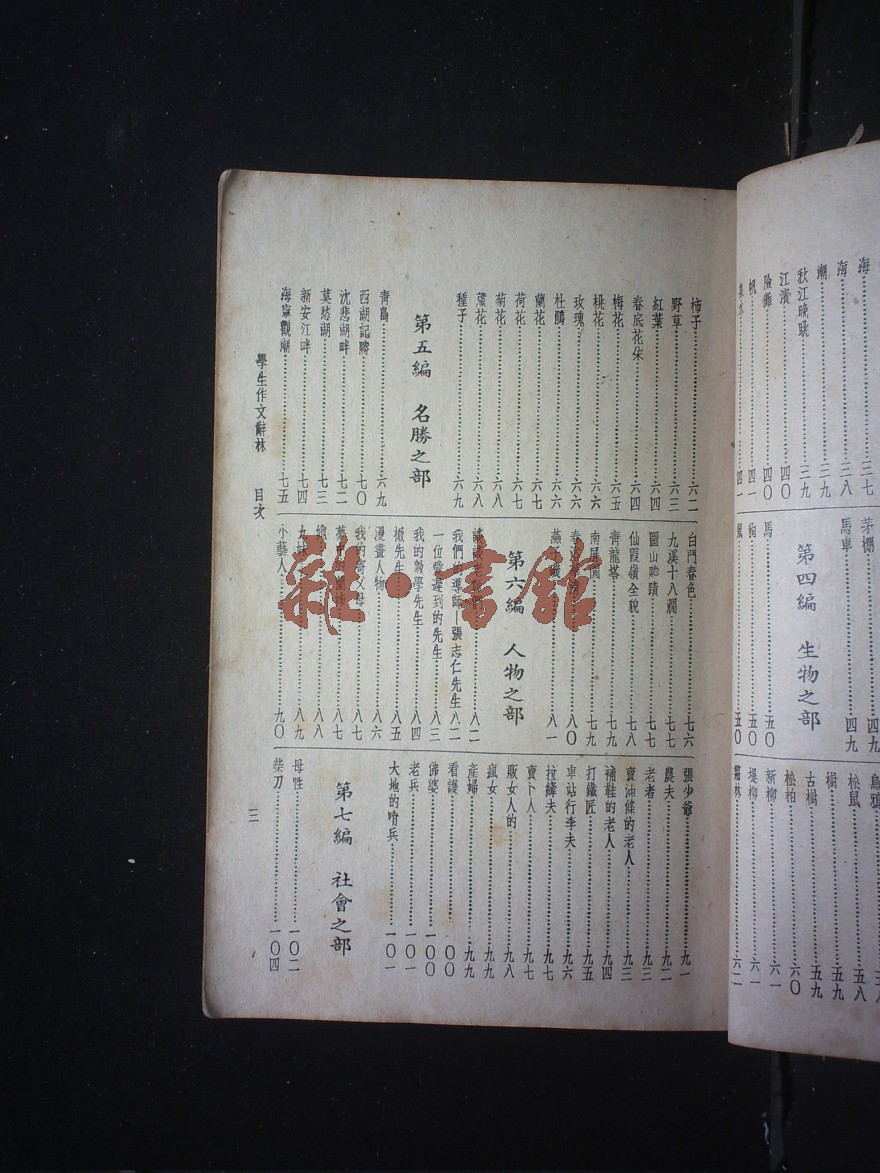 海
海
潮
秋江晚眺
江濱
險灘
帆
三七
三八
三九
三九
四〇
四〇
四一
四一
茅棚
四九
馬車
四九
第四編 生物之部
馬
五〇
狗
五〇
五〇
松鼠
五八
樹
五九
古樹
五九
松柏
六〇
新柳
六一
堤柳
六一
霜林
六二
柿子
六二
野草
六三
紅葉
六四
春底花朵
六四
梅花
六五
桃花
六六
玫瑰
六六
杜鵑
六六
蘭花
六七
荷花
六七
菊花
六八
蘆花
六八
種子
六九
第五編 名勝之部
青島
六九
西湖記勝
七〇
沈悲湖畔
七二
莫愁湖
七三
新安江畔
七四
海寧觀潮
七五
白門春色
七六
九溪十八澗
七七
圌山勝蹟
七七
仙霞嶺全貌
七八
青龍塔
七九
南屏園
七九
八〇
燕子磯
八一
第六編 人物之部
八二
我們的導師—張志仁先生
八二
一位常遲到的先生
八三
我的教學先生
八四
先生
八五
漫畫人物
八六
我的寄父母
八七
八七
八八
八九
小藝人
九〇
張少爺
九一
農夫
九二
老者
九三
賣油條的老人
九三
補鞋的老人
九四
打鐵匠
九五
車站行李夫
九六
拉縴夫
九七
賣卜人
九七
販女人的
九八
瘋女
九九
產婦
九九
看護
一〇〇
佛婆
一〇〇
老兵
一〇一
大地的哨兵
一〇一
第七編 社會之部
母性
一〇二
柴刀
一〇四
學生作文辭林 目次
三
雜·書館